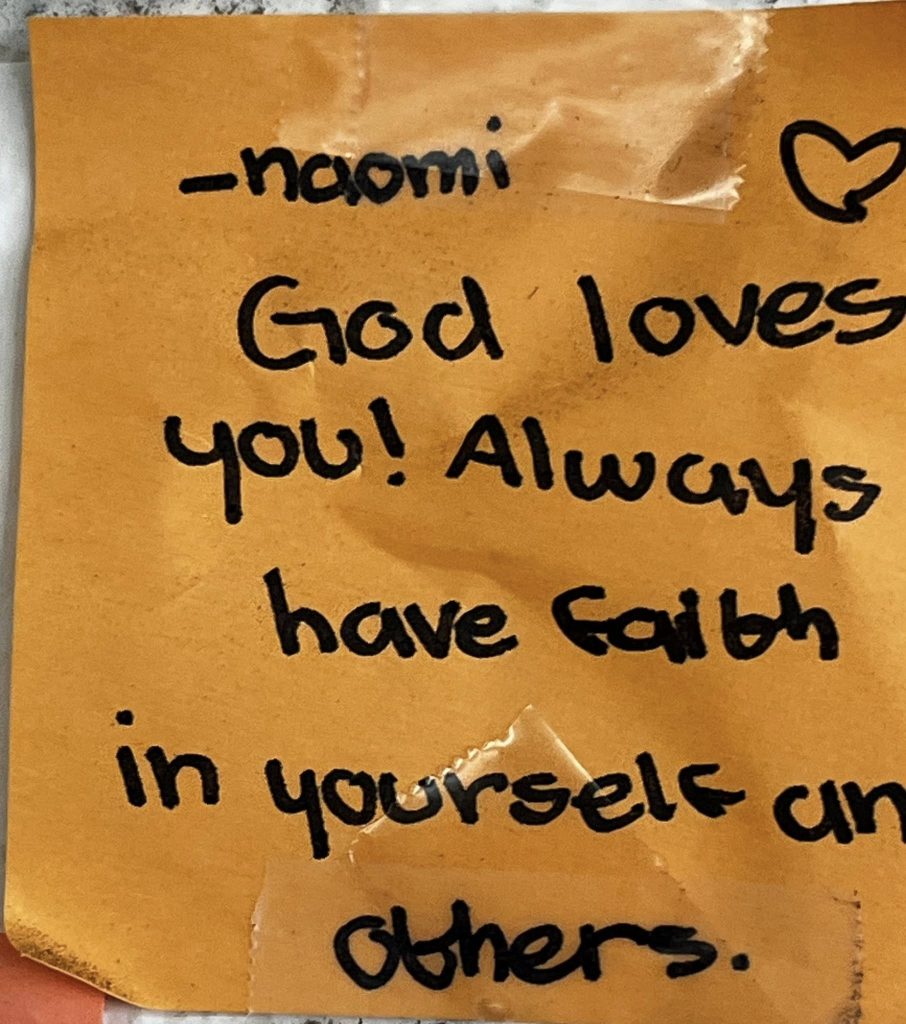 -naomi ♡
God loves
you! Always
have faith
in yourself an
others.